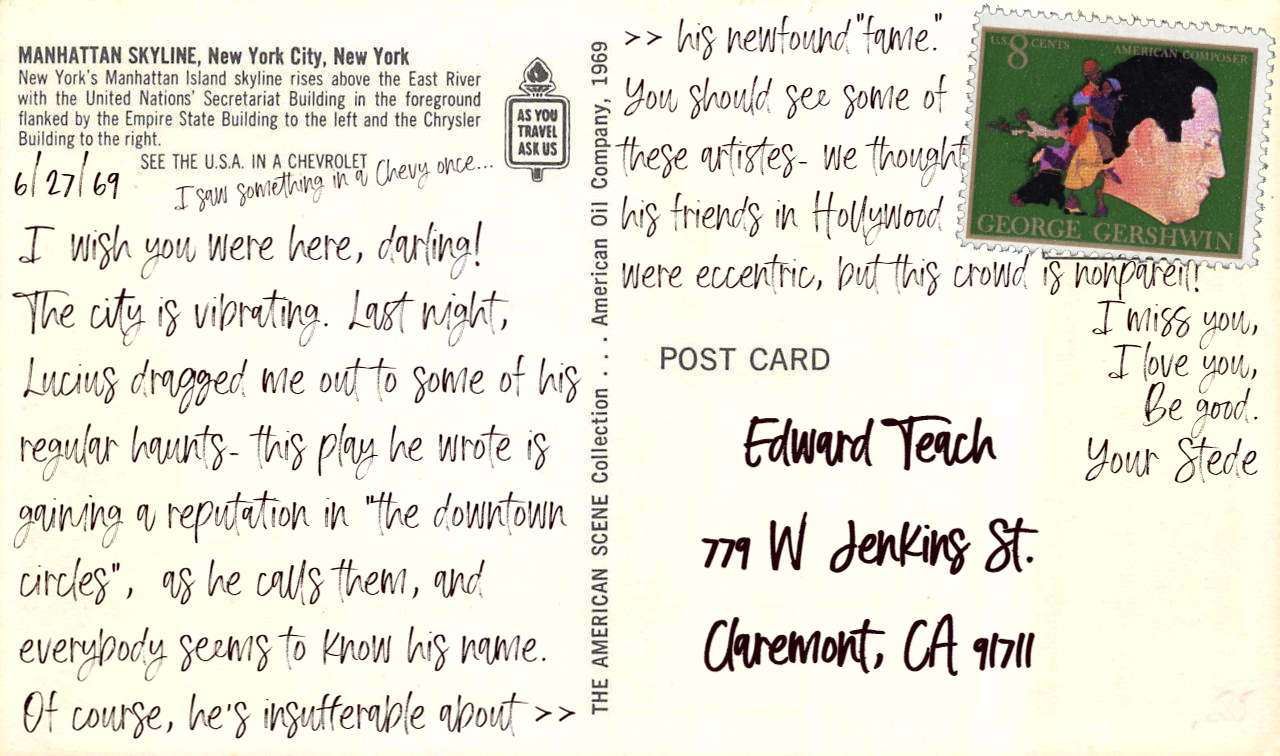 MANHATTAN SKYLINE, New York City, New York
New York's Manhattan Island skyline rises above the East River
with the United Nations' Secretariat Building in the foreground
flanked by the Empire State Building to the left and the Chrysler
Building to the right.
SEE THE U.S.A. IN A CHEVROLET
AS YOU
TRAVEL
ASK US
6/27/69
I saw something in a Chevy once...
I wish you were here, darling!
The city is vibrating. Last night,
Lucius dragged me out to some of his
regular haunts- this play he wrote is
gaining a reputation in "the downtown
circles", as he calls them, and
everybody seems to know his name.
Of course, he's insufferable about >>
THE AMERICAN SCENE Collection . . . American Oil Company, 1969
>> his newfound "fame."
You should see some of
these artistes- we thought
his friends in Hollywood
were eccentric, but this crowd is nonpareil!
I miss you,
I love you,
Be good.
Your Stede
U.S. 8 CENTS
AMERICAN COMPOSER
GEORGE GERSHWIN
POST CARD
Edward Teach
779 W Jenkins St.
Claremont, CA 91711